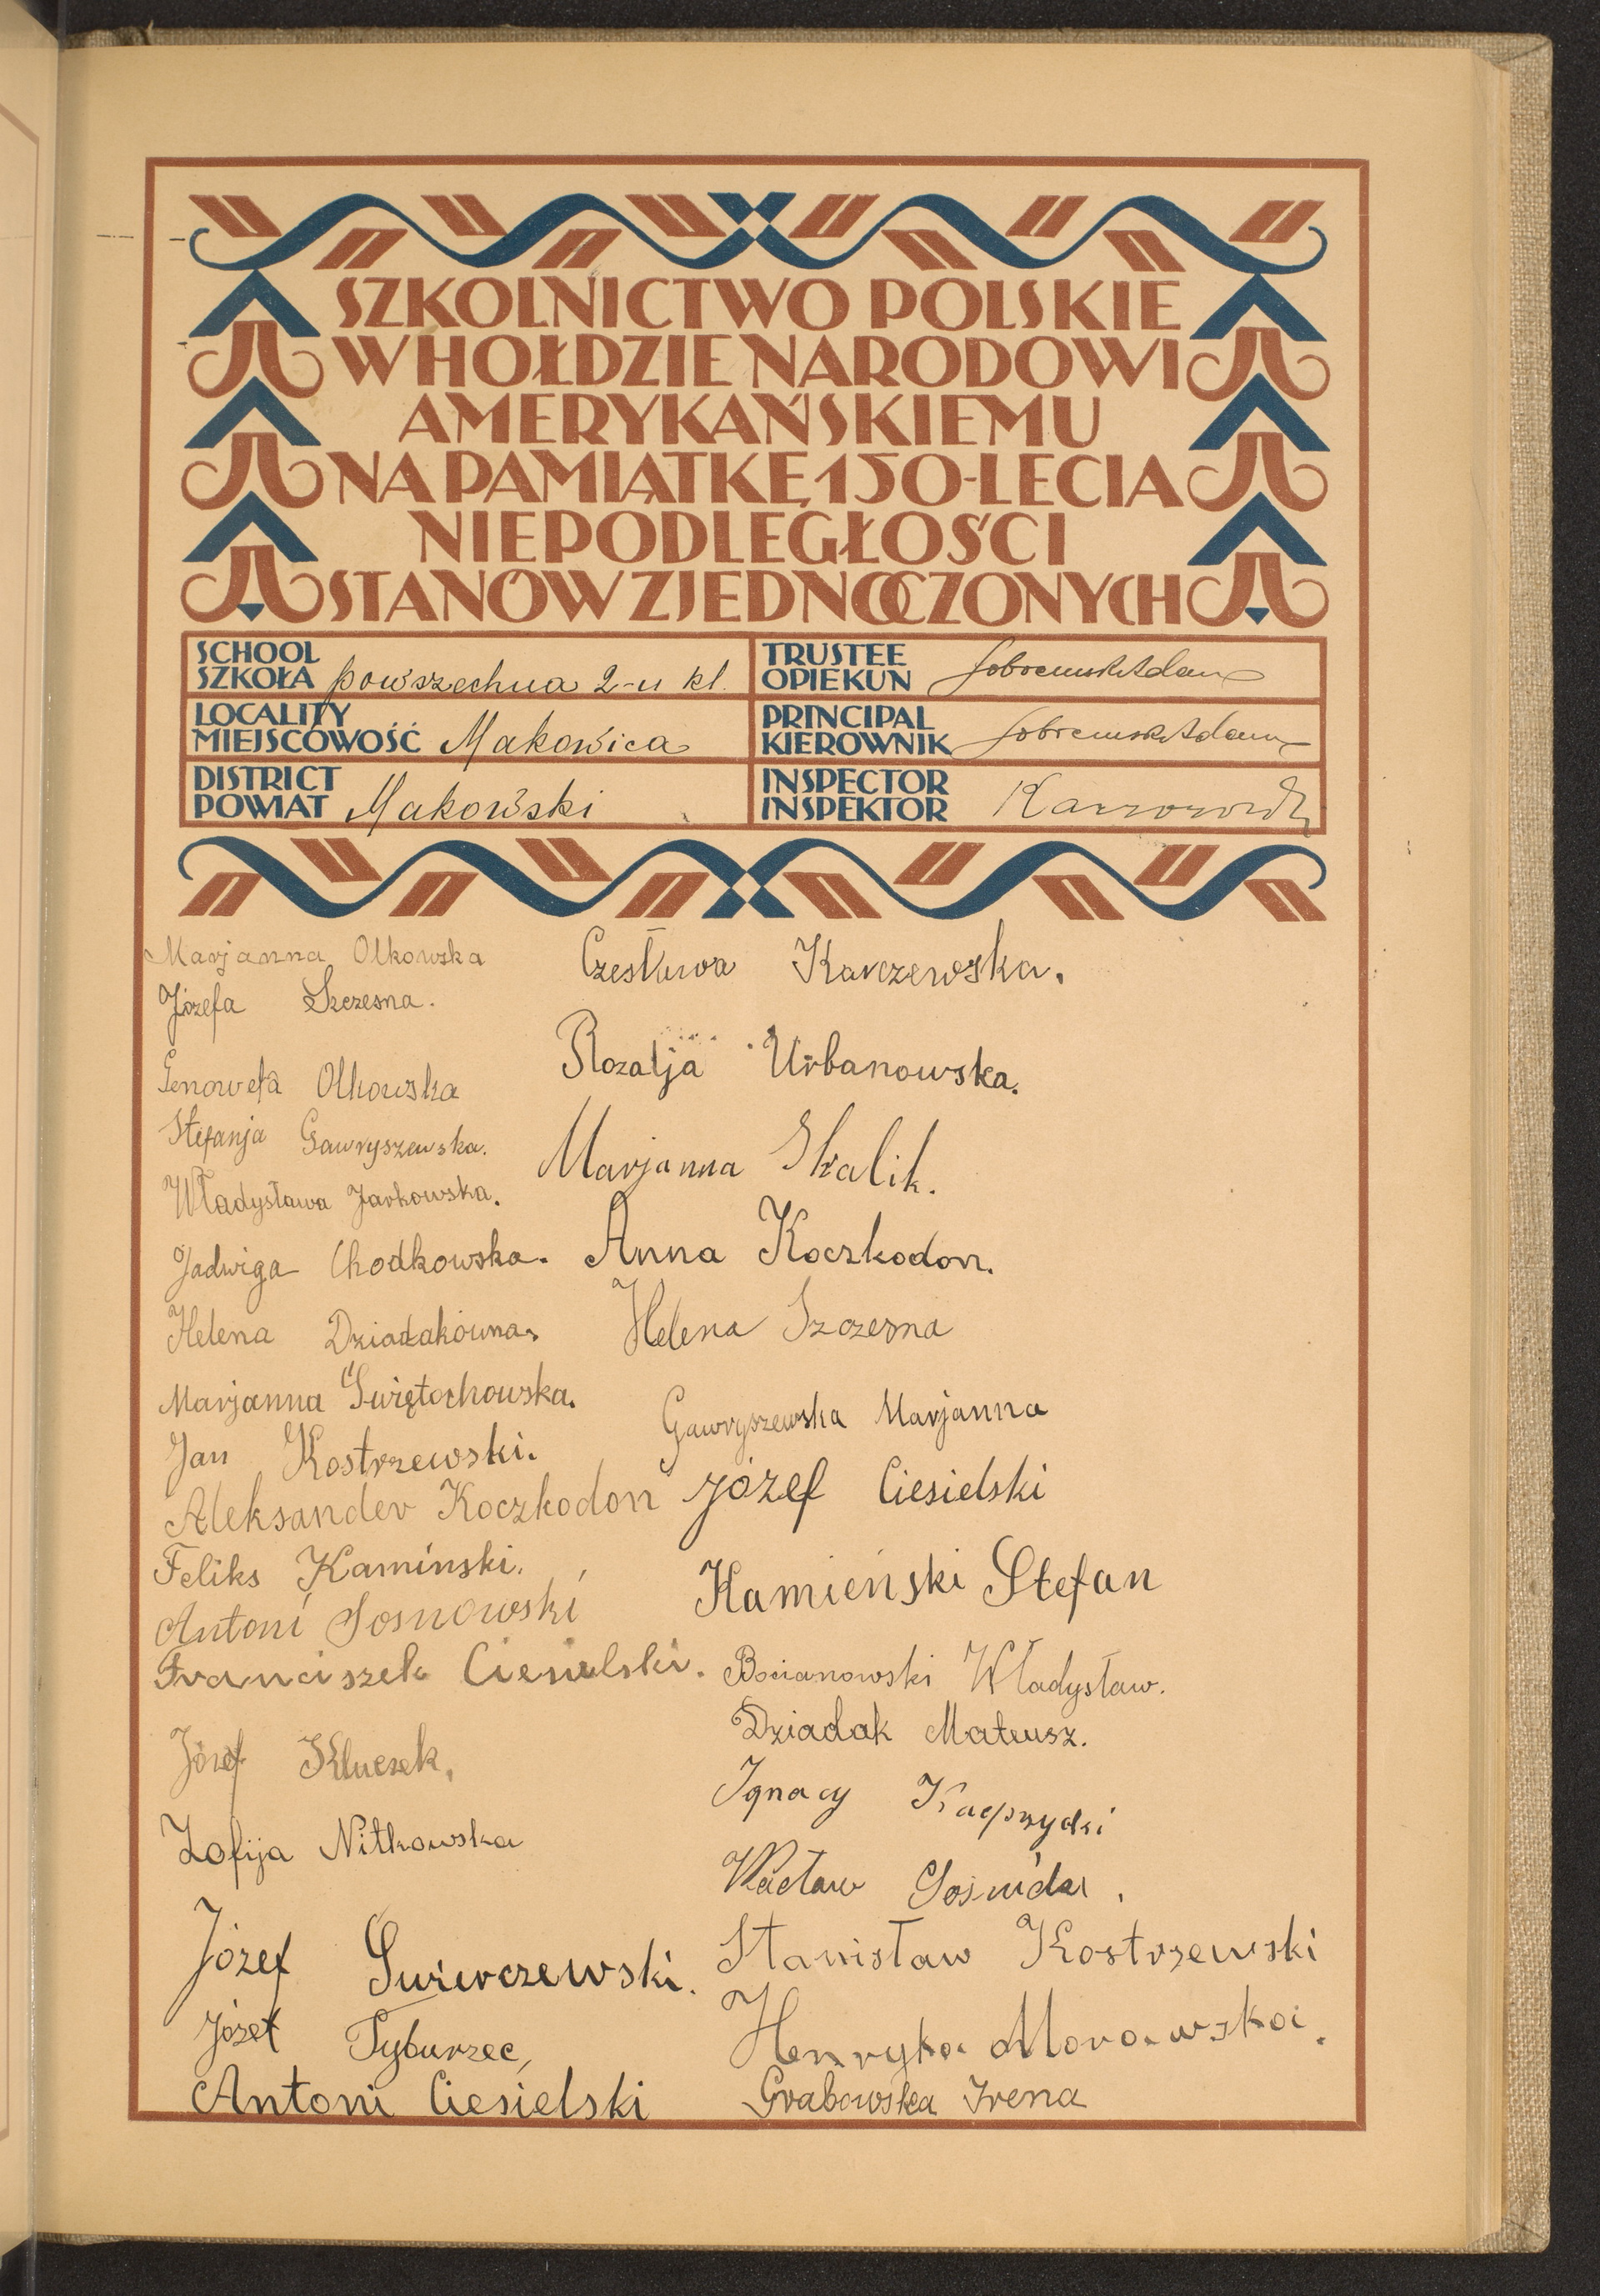 SZKOLNICTWO POLSKIE
W HOŁDZIE NARODOWI
AMERYKAŃSKIEMU
NA PAMIĄTKĘ 150-LECIA
NIEPODLEGŁOŚCI
STANÓW ZJEDNOCZONYCH
SCHOOL
SZKOŁA powszechna 2-u kl.
LOCALITY
MIEJSCOWOŚĆ Makowica
DISTRICT
POWIAT Makowski
TRUSTEE
OPIEKUN Adam
PRINCIPAL
KIEROWNIK Adam
INSPECTOR
INSPEKTOR
Marjanna Olkowska
Józefa Szczesna.
Genowefa Olkowska
Stefanja Gawryszewska.
Władysława Jarkowska.
Jadwiga Chodkowska.
Helena Dziadakówna.
Marjanna Świętochowska.
Jan Kostrzewski.
Aleksander Koczkodon
Feliks Kamiński.
Antoni Sosnowski
Franciszek Ciesielski.
Józef Kluczek.
Zofija Nitkowska
Józef Świerczewski.
Józef Tyburzec,
Antoni Ciesielski
Czesława Karczewska.
Rozalja Urbanowska.
Marjanna Skalik.
Anna Koczkodon.
Helena Szczesna
Gawryszewska Marjanna
Józef Ciesielski
Kamieński Stefan
Bocianowski Władysław.
Dziadak Mateusz.
Ignacy Kacprzycki
Wacław
Stanisław Kostrzewski
Henryka Morawska.
Grabowska Irena